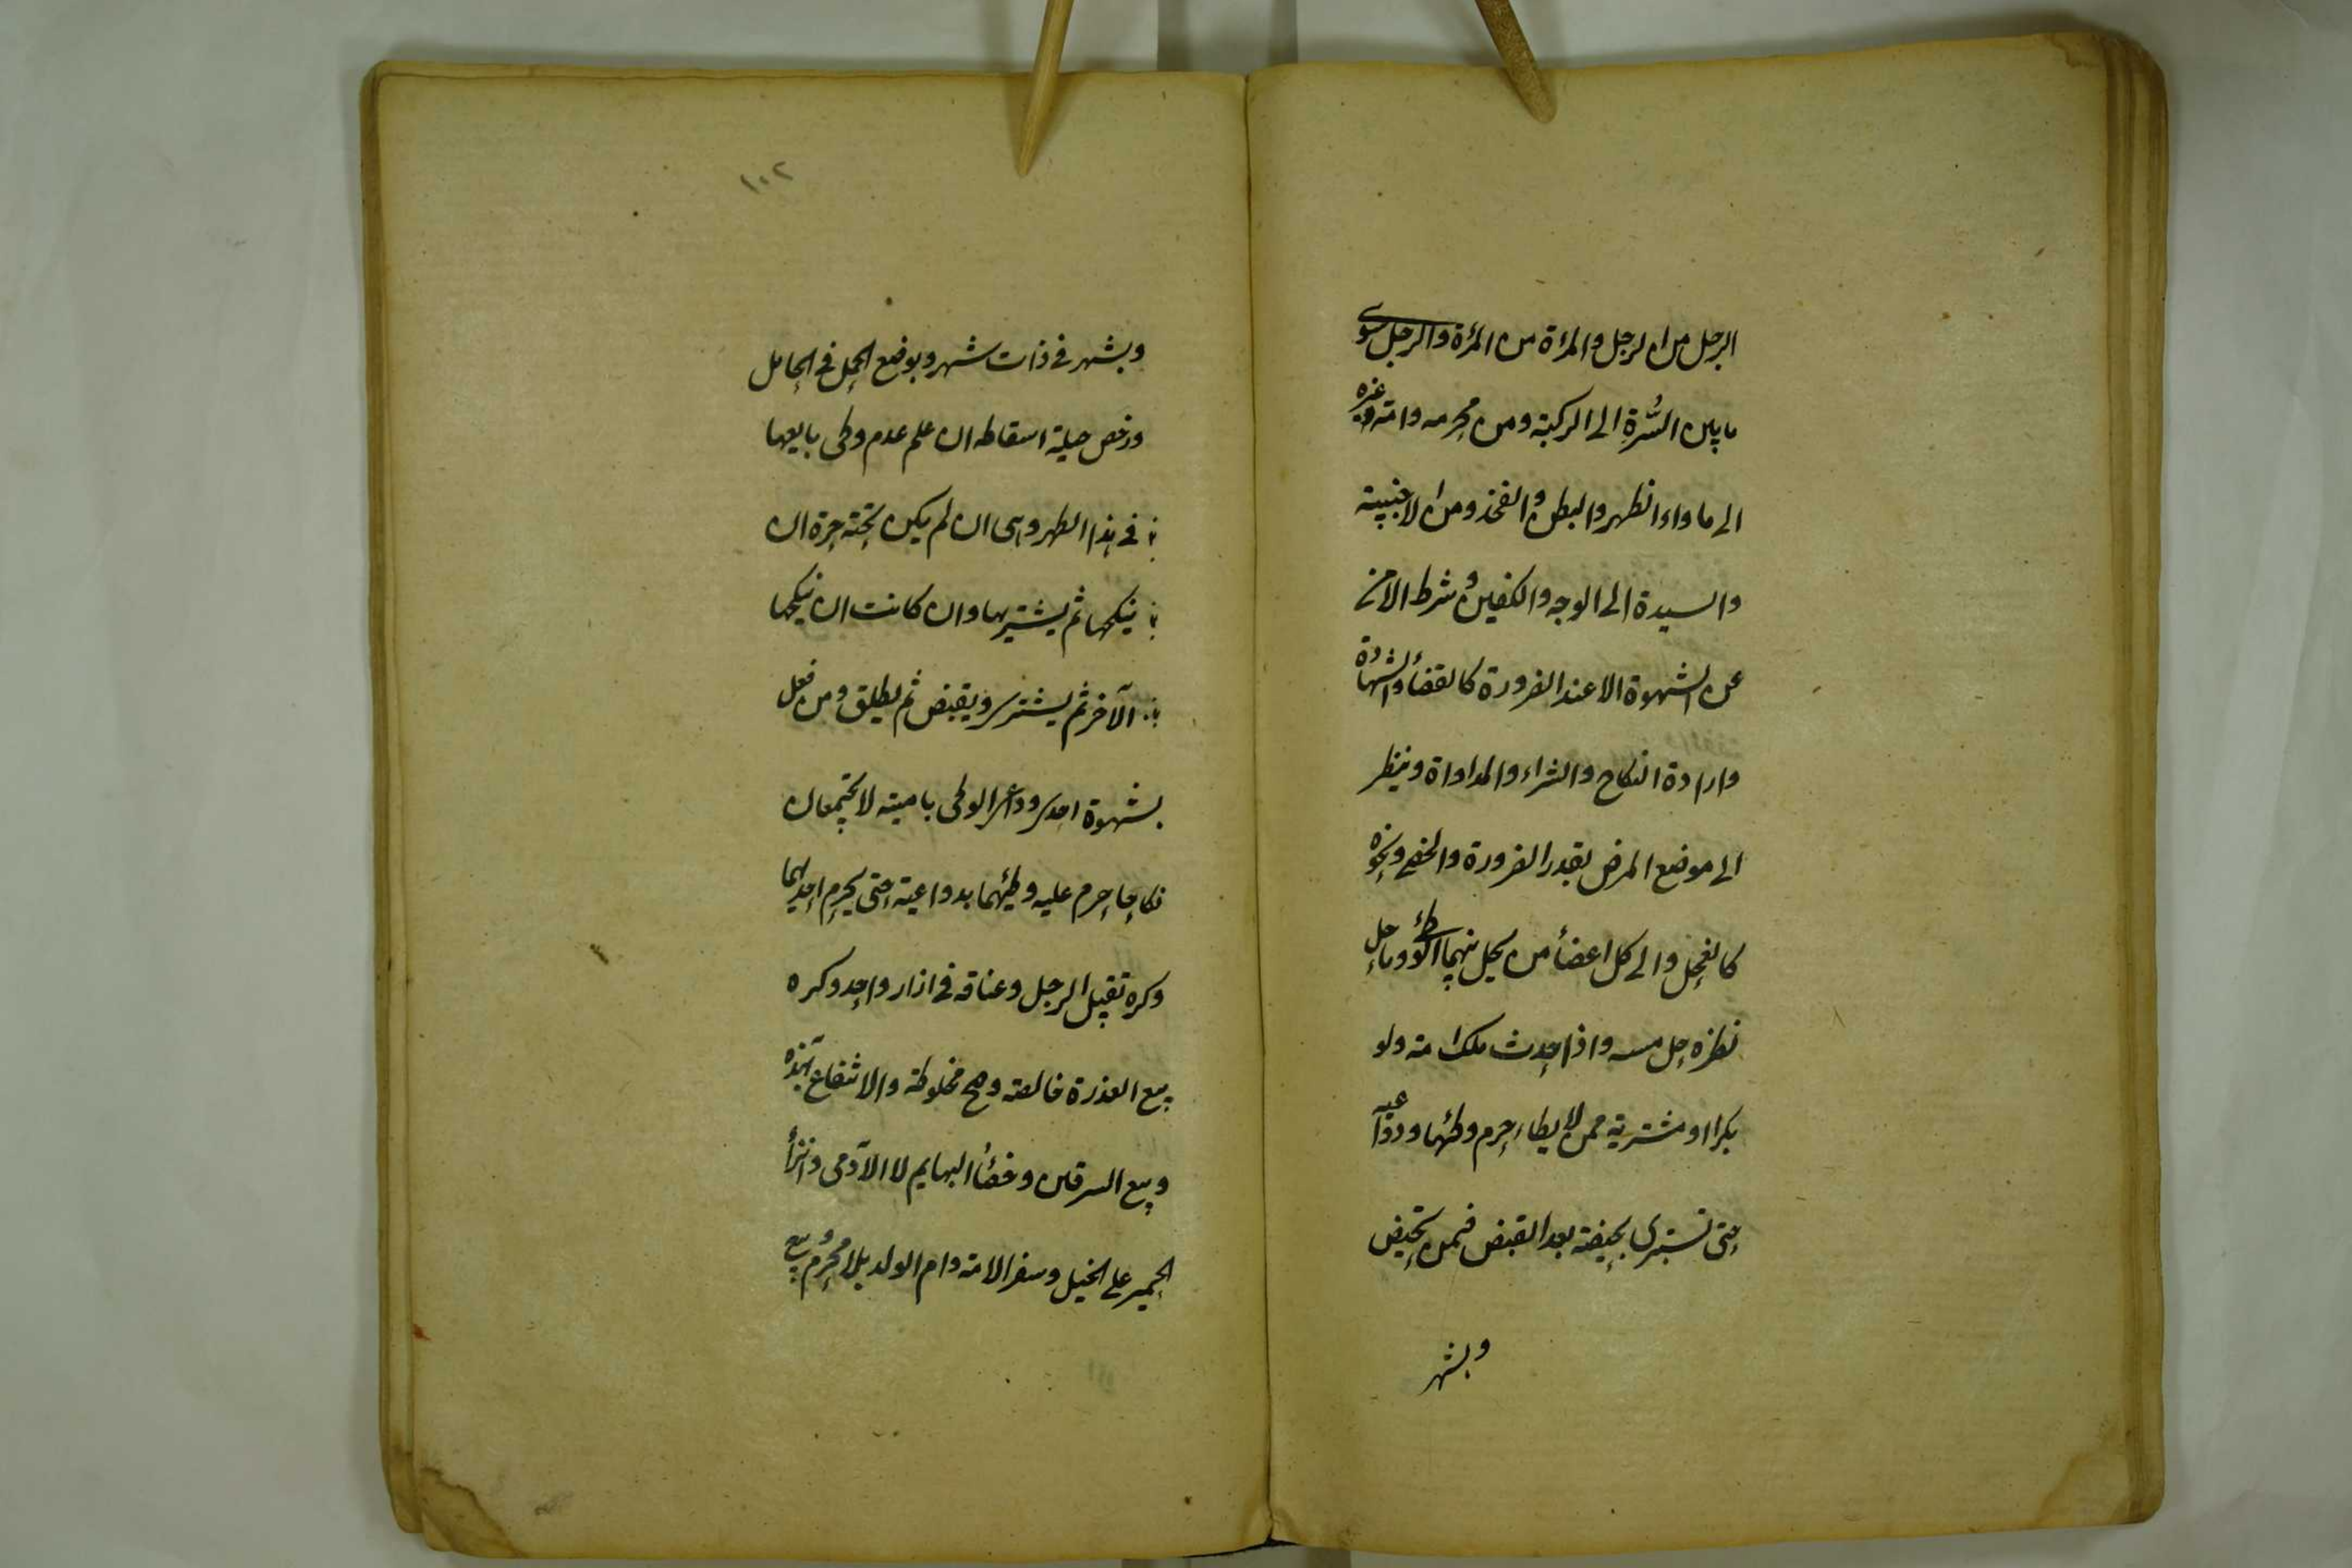 الرجل من الرجل والمرءة من المرءة والرجل سوى
ما بين السُّرةِ الى الركبة ومن محرمه وامة غيره
الى ما وراء الظهر والبطن والفخذ ومن الاجنبية
والسيدة الى الوجه والكفين وشرط الامن
عن الشهوة الا عند الضرورة كالقضاء والشهادة
وارادة النكاح والشراء والمداواة وينظر
الى موضع المرض بقدر الضرورة والخفض ونحوه
كالفحل والى كل اعضاء من يحل بينهما الوطئ وما حل
نظره حل مسه واذا حدث ملك امة ولو
بكرا او مشترية ممن لا يطاء حرم وطئها ودواعيه
حتى تستبرى بحيضة بعد القبض فيمن تحيض
وبشهر
١٠٢
وبشهر فى ذات شهر وبوضع الحمل فى الحامل
ورخص حيلة اسقاطه ان علم عدم وطى بايعها
فى هذا الطهر وهى ان لم يكن تحته حرة ان
ينكحها ثم يشتريها وان كانت ان ينكحها
الآخر ثم يشترى ويقبض ثم يطلق ومن فعل
بشهوة احدى دواعى الوطى بامتيه لا تجتمعان
نكاحا حرم عليه وطئهما بدواعيه حتى يحرم احديهما
وكره تقبيل الرجل وعناقه فى ازار واحد وكره
بيع العذرة خالصة وصح مخلوطة والانتفاع بهذه
وبيع السرقين وخصاء البهايم لا الآدمى وانزاء
الحمير على الخيل وسفر الامة وام الولد بلا محرم وبيع